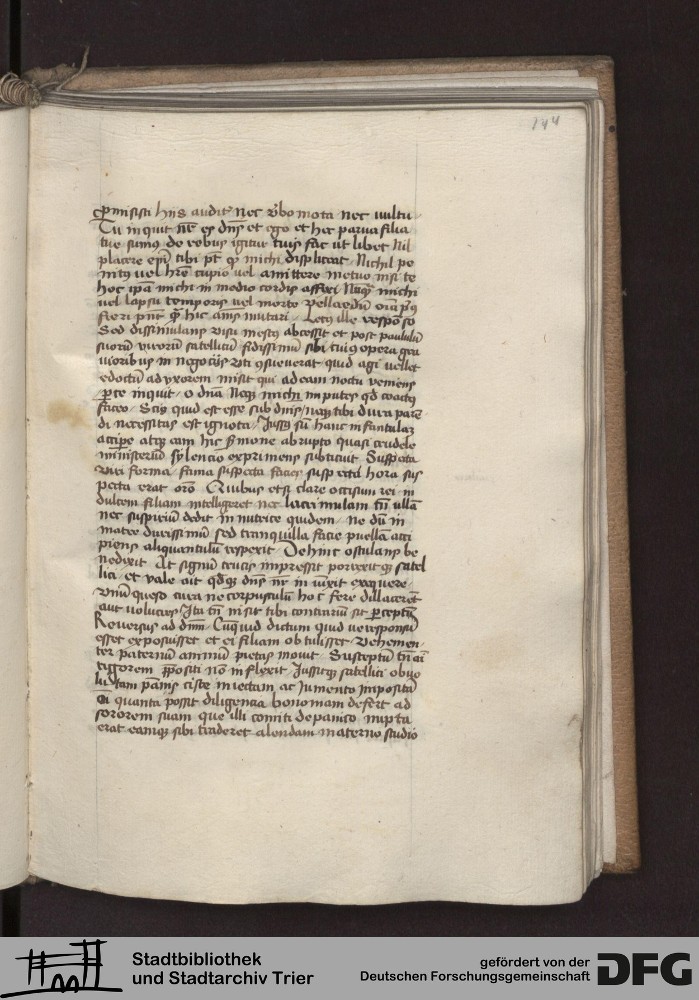 144
promisisti hiis audit' nec v'bo mota nec vultu
Tu inquit nr̄ es dn̄s et ego et hec parua filia
tue sumꝰ de rebus igitur tuis fac ut libet Nil
placere em̄ tibi pt̄ qd michi displiceat Nichil pe
nitus vel hr̄e cupio vel amittere metuo nisi te
hoc ip̄a michi in medio cordis affixi Nūqꝫ michi
vel lapsu temporis vel morte vellendū om̄a pͥus
fieri pn̄t qͣꝫ hic animꝰ mutari Letus ille responso
Sed dissimulans visu mestꝰ abcessit et post paululū
suorū vnorū satellitū fidissimū sibi cuiꝰ opera gra
uioribus in negociis vti ꝯsueuerat quid agi vellet
edoctū ad vxorem misit qui ad eam noctu veniens
parce inquit o dn̄a Neqꝫ michi imputes qd coactꝰ
facio Scis quid est esse sub dnīs neqꝫ tibi dura parē
di necessitas est ignota Jussꝰ sū hanc infantulaꝫ
accipe atqꝫ eam hic s̄mone abrupto quasi crudele
ministeriū sylencio exprimens subticuit Suspecta
viri forma fama suspecta facies suspecta hora sus
pecta erat orō Quibus etsi clare occisum iri in
dulcem filiam intelligeret nec lacrimulam tn̄ vllā
nec suspiriū dedit in nutrice quidem ne dū in
matre durissimū sed tranquilla facie puellā acci
piens aliquantulū respexit Dehinc ostulans be
nedixit At signū crucis impressit porrexitqꝫ satel
liti et vale ait qdqꝫ dn̄s nr̄ iniūxit exequere
Vnū queso cura ne corpusculū hoc fere dilacerent
aut volucres Ita tn̄ nisi tibi contrariū sit p̱ceptū
Reuersus ad dnm̄ Cuꝫ quid dictum quid ve responsū
esset exposuisset et ei filiam obtulisset Vehemen
ter paternū animū pietas mouit Susceptū tn̄ ai
rigorem ꝓpositi nō inflexit Jussitqꝫ satelliti obuo
lutam pānis ciste iniectam ac iumento impositā
Cū quanta possit diligencia bononiam defert ad
sororem suam que illi comiti de panico nupta
erat eamqꝫ sibi traderet alendam materno studio
Stadtbibliothek
und Stadtarchiv Trier
gefördert von der
Deutschen Forschungsgemeinschaft
DFG